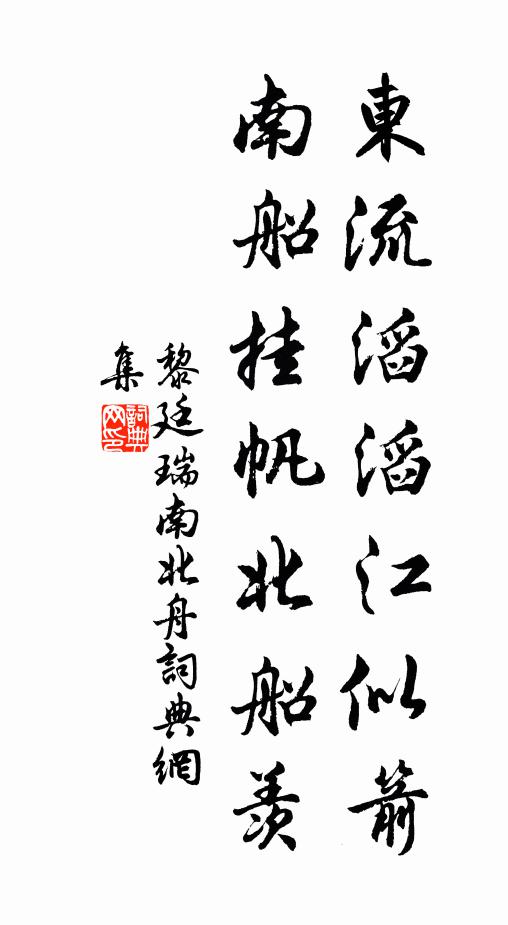 東流滔滔江似箭
南船挂帆北船羨
黎廷瑞南北舟詞典網
集
詞典网印